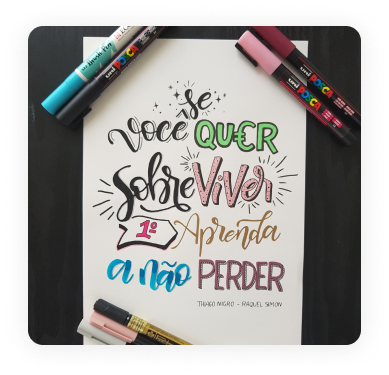 Se
Você QU€R
SobreViVer
1º Aprenda
a não PERDER
THIAGO NIGRO - RAQUEL SIMON
uni POSCA
uni POSCA
uni POSCA